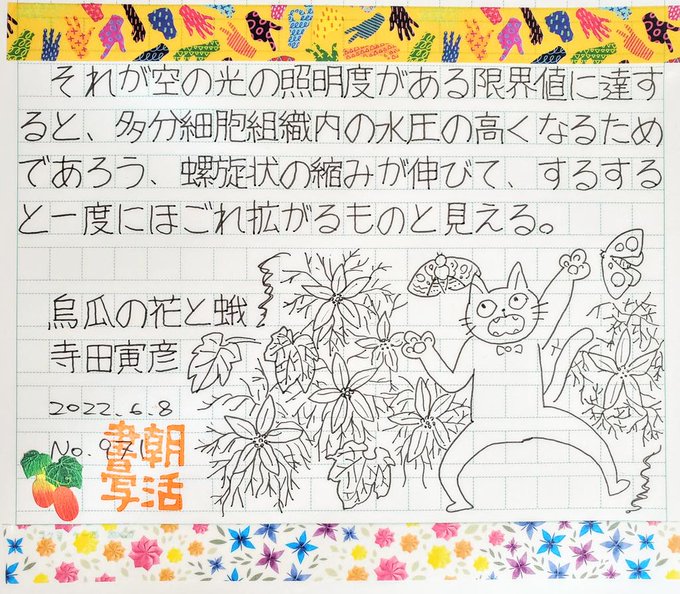 それが空の光の照明度がある限界値に達す
ると、多分細胞組織内の水圧の高くなるため
であろう、螺旋状の縮みが伸びて、するする
と一度にほごれ拡がるものと見える。
烏瓜の花と蛾
寺田寅彦
2022.6.8
No.971
朝活
書写